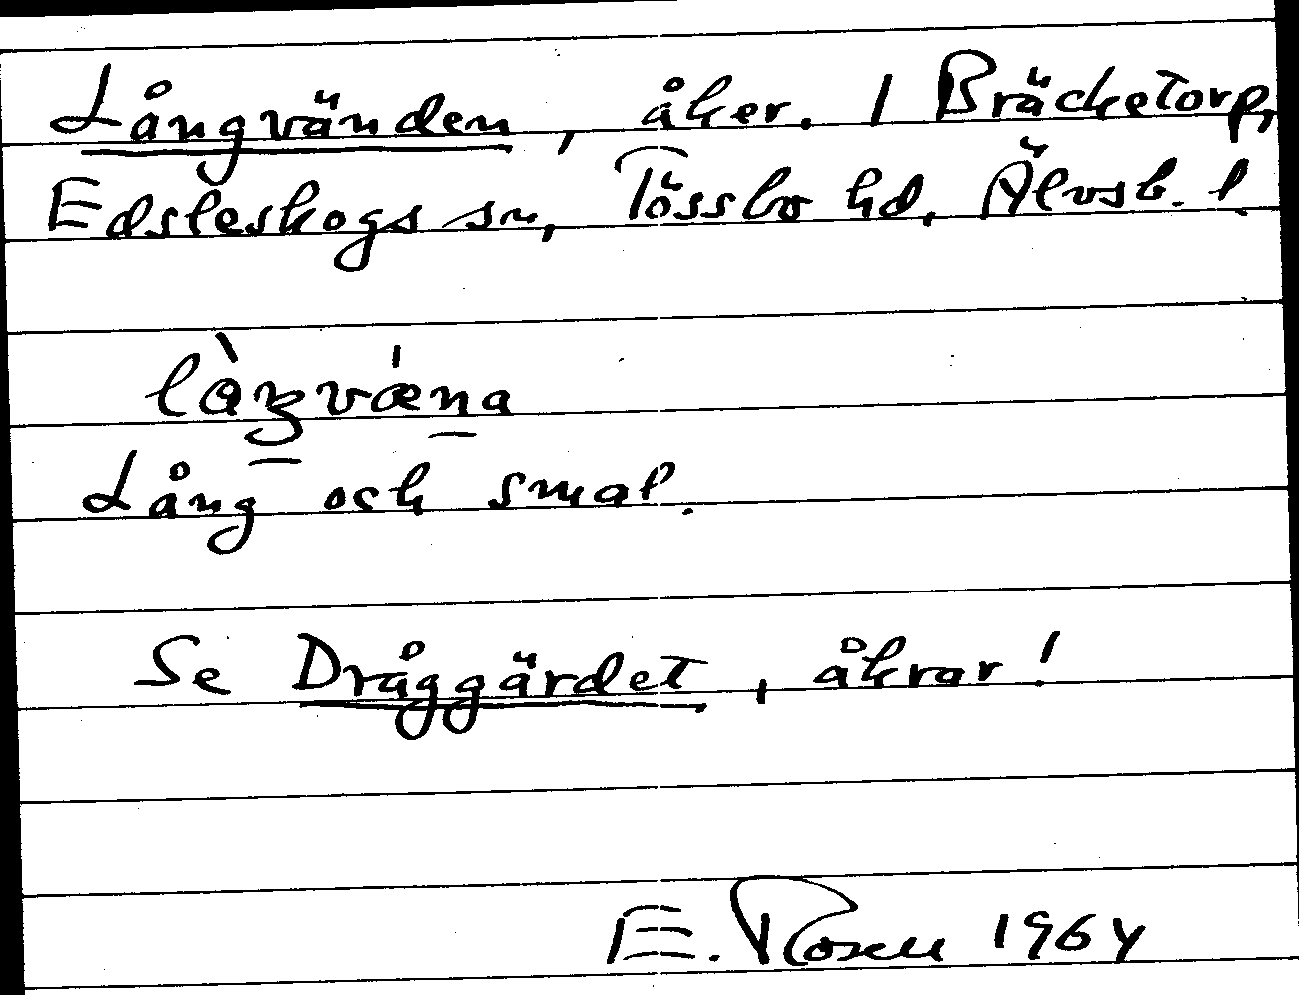 Långvänden, åker. 1 Bräcketorp,
Edsleskogs sn, Tössbo hd, Älvsb. l.
Lång och smal.
Se Dråggärdet, åkrar!
E. Rosen 1964